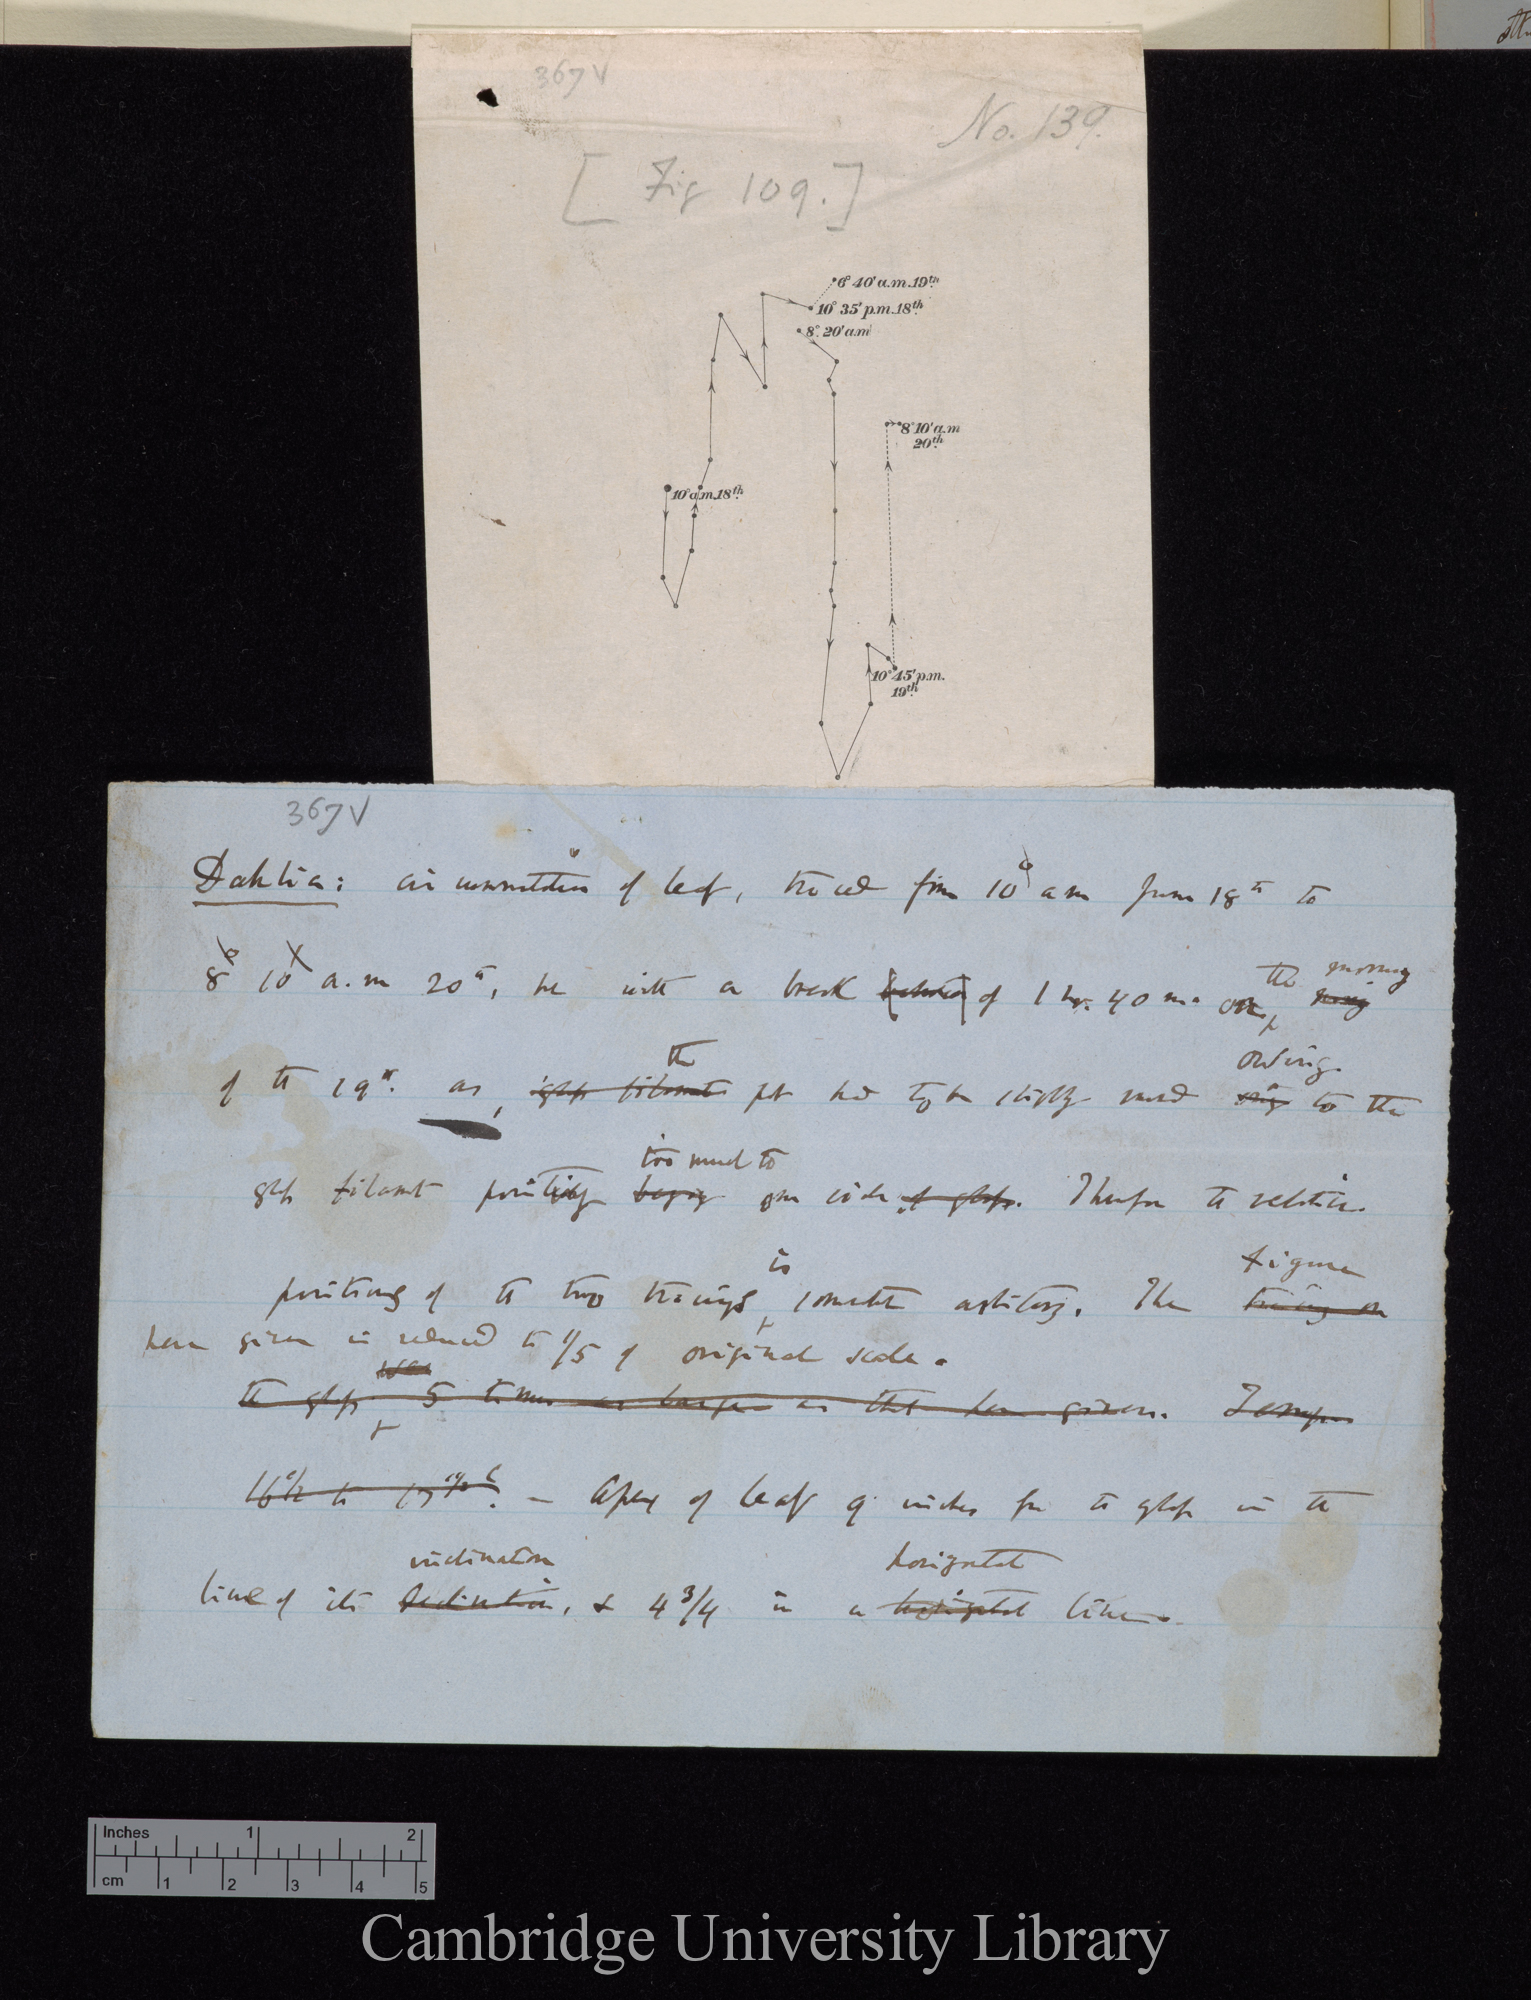 367V
No. 139.
[Fig 109.]
6° 40' a.m. 19th
10° 35' p.m. 18th
8° 20' a.m
8° 10' a.m
20th
10° a.m. 18th
10° 45' p.m.
19th
367V
Dahlia: circumnutation of leaf, traced from 10° a m June 18th to
8° 10' a.m 20th, but with a break of 1 hr. 40 m. on the morning
of the 19th. as, glass filament the pot had to be slightly moved owing to the
glass filament pointing too much to one side of glass. Therefore the relative
positions of the two tracings is somewhat arbitrary. The tracing on figure
here given is reduced to 1/5 of original scale.
the glass was 5 times as large as that here given. Temp
16 1/2 to 17 1/2 C. — Apex of leaf 9 inches from the glass in the
line of its inclination, & 4 3/4 in a horizontal line.
Inches 1 2
cm 1 2 3 4 5
Cambridge University Library